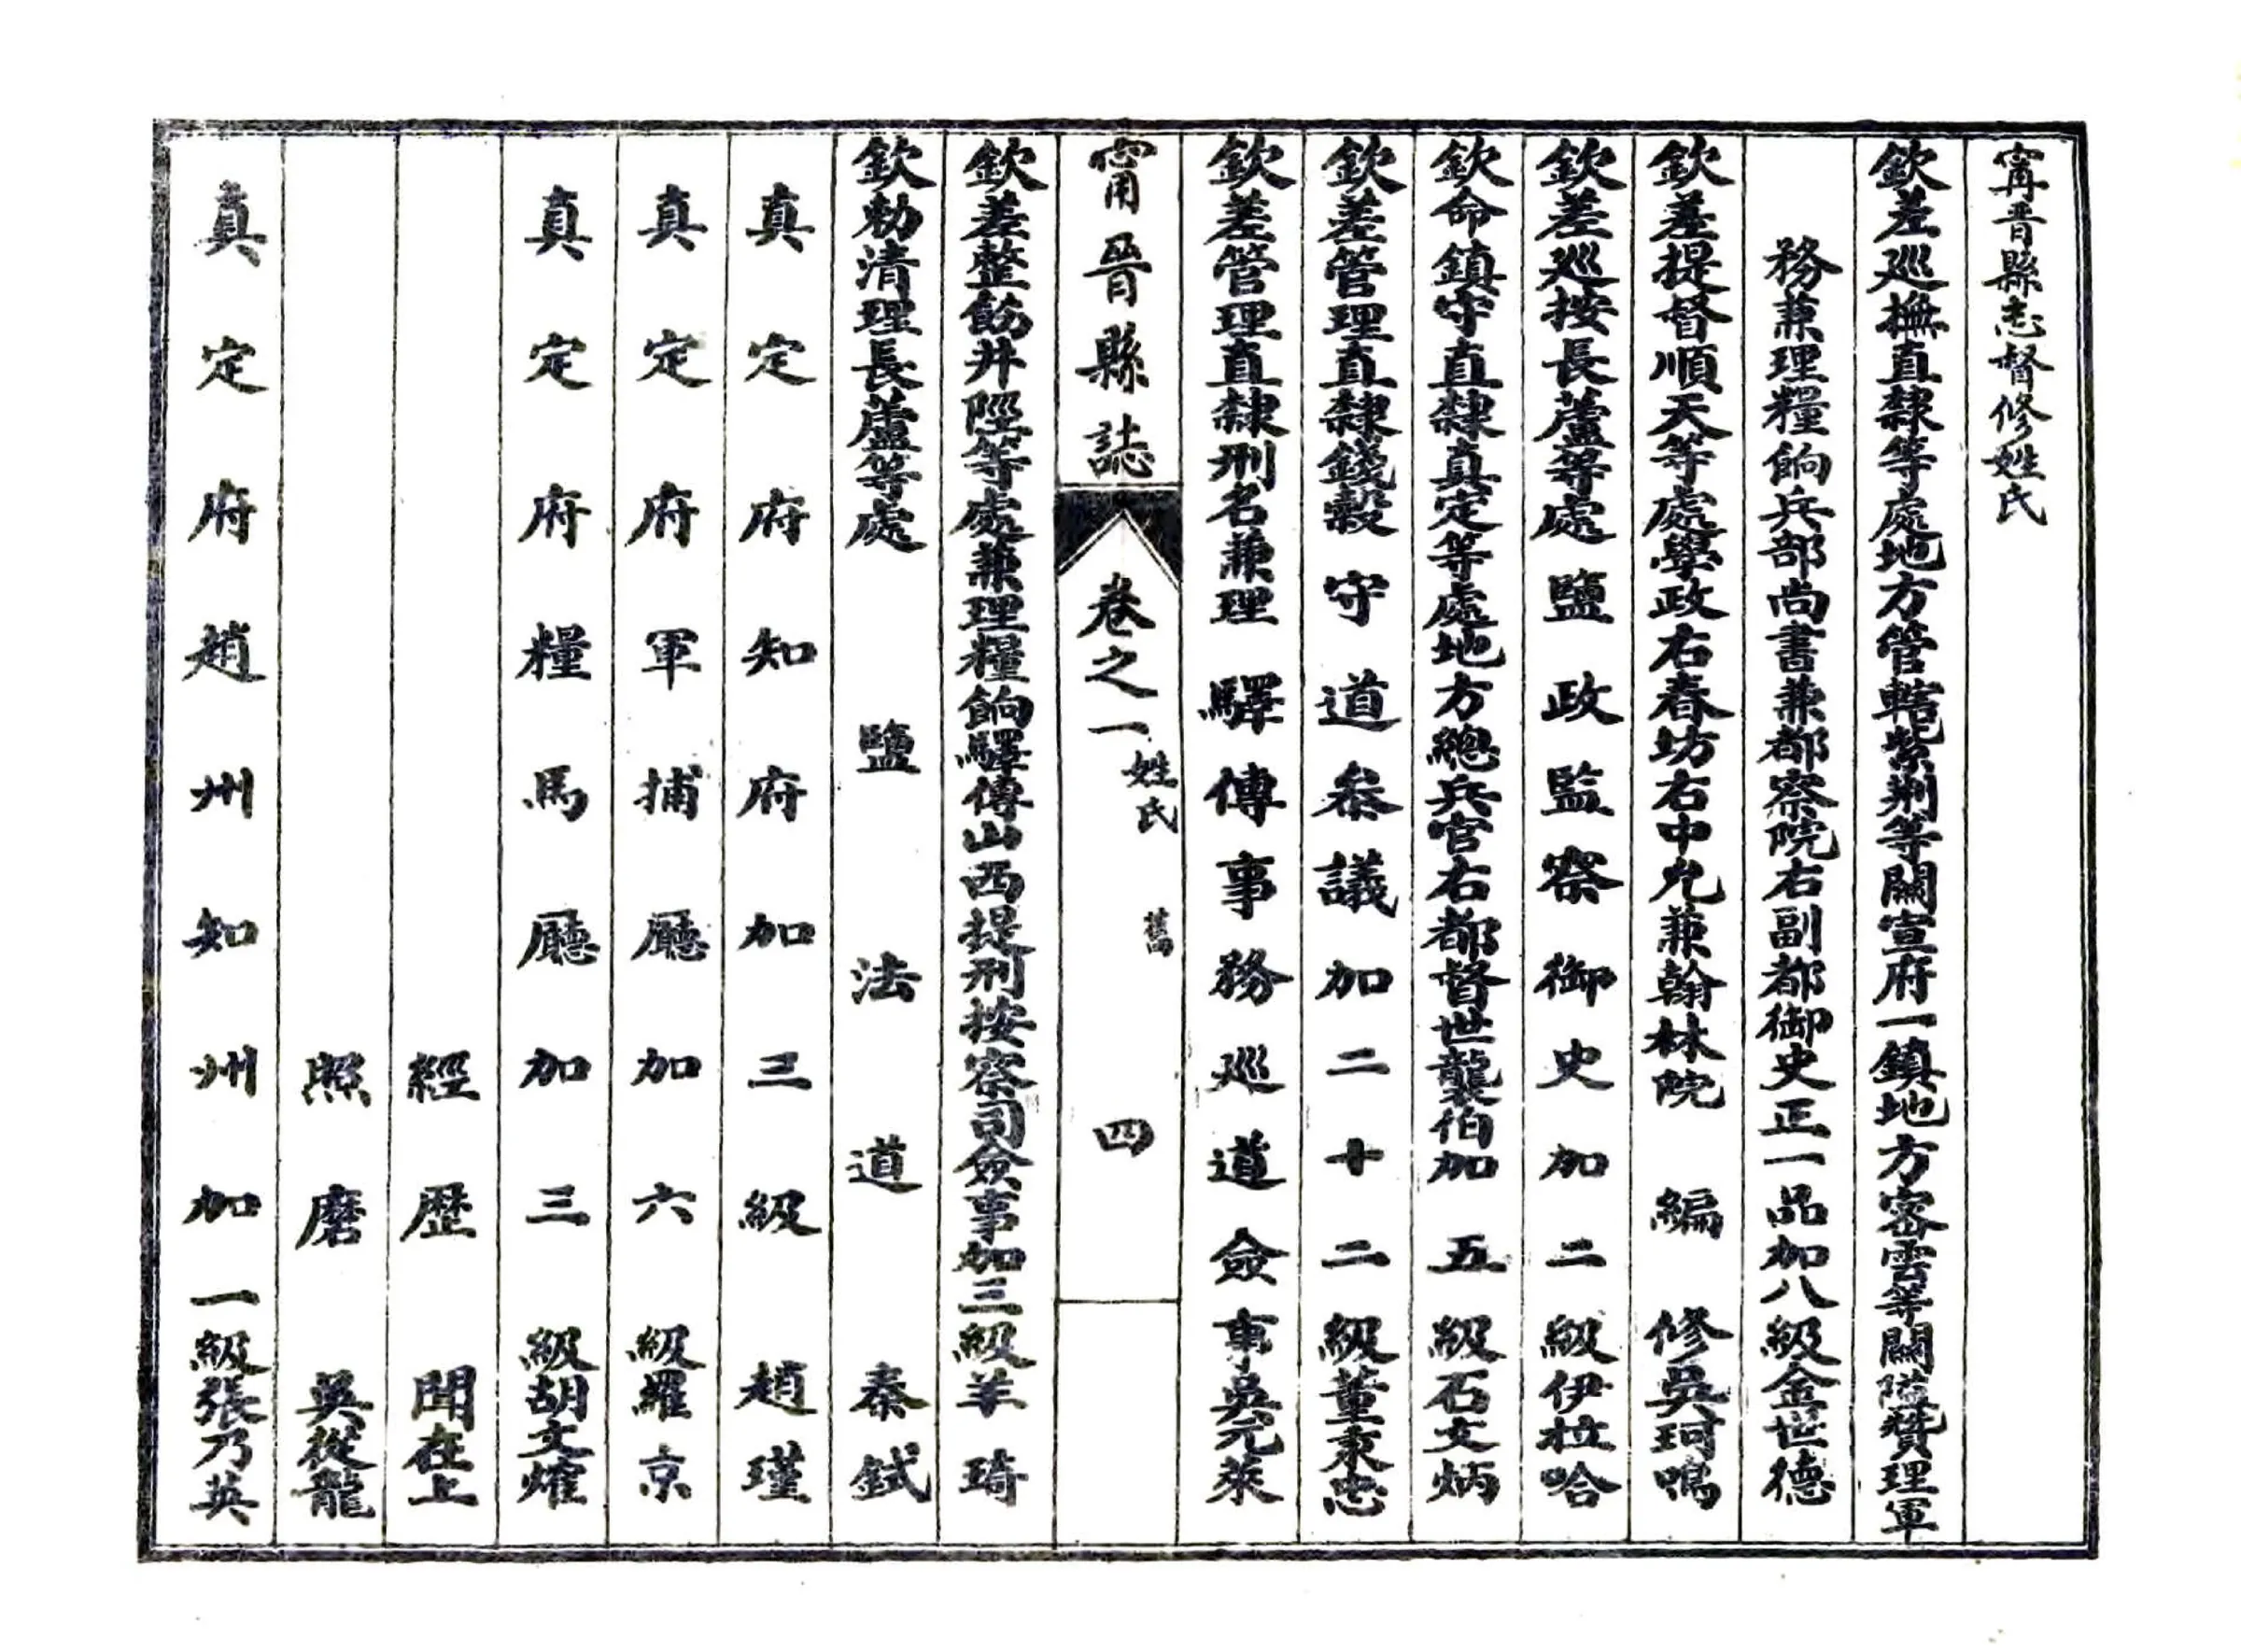 甯晋縣志督修姓氏
欽差巡撫直隸等處地方管轄紫荆等關宣府一鎮地方密雲等關隘贊理軍
務兼理糧餉兵部尚書兼都察院右副都御史正一品加八級金世德
欽差提督順天等處學政右春坊右中允兼翰林院編修吳珂鳴
欽差巡按長蘆等處鹽政監察御史加二級伊拉哈
欽命鎮守直隸真定等處地方總兵官右都督世襲伯加五級石文炳
欽差管理直隸錢穀守道叅議加二十二級董秉忠
欽差管理直隸刑名兼理驛傳事務巡道僉事吳元萊
甯晉縣誌 卷之一 姓氏 舊 四
欽差整飭井陘等處兼理糧餉驛傳山西提刑按察司僉事加三級羊琦
欽勅清理長蘆等處鹽法道秦鉽
真定府知府加三級趙瑾
真定府軍捕廳加六級羅京
真定府糧馬廳加三級胡文燿
經歷聞在上
照磨吳從龍
真定府趙州知州加一級張乃英